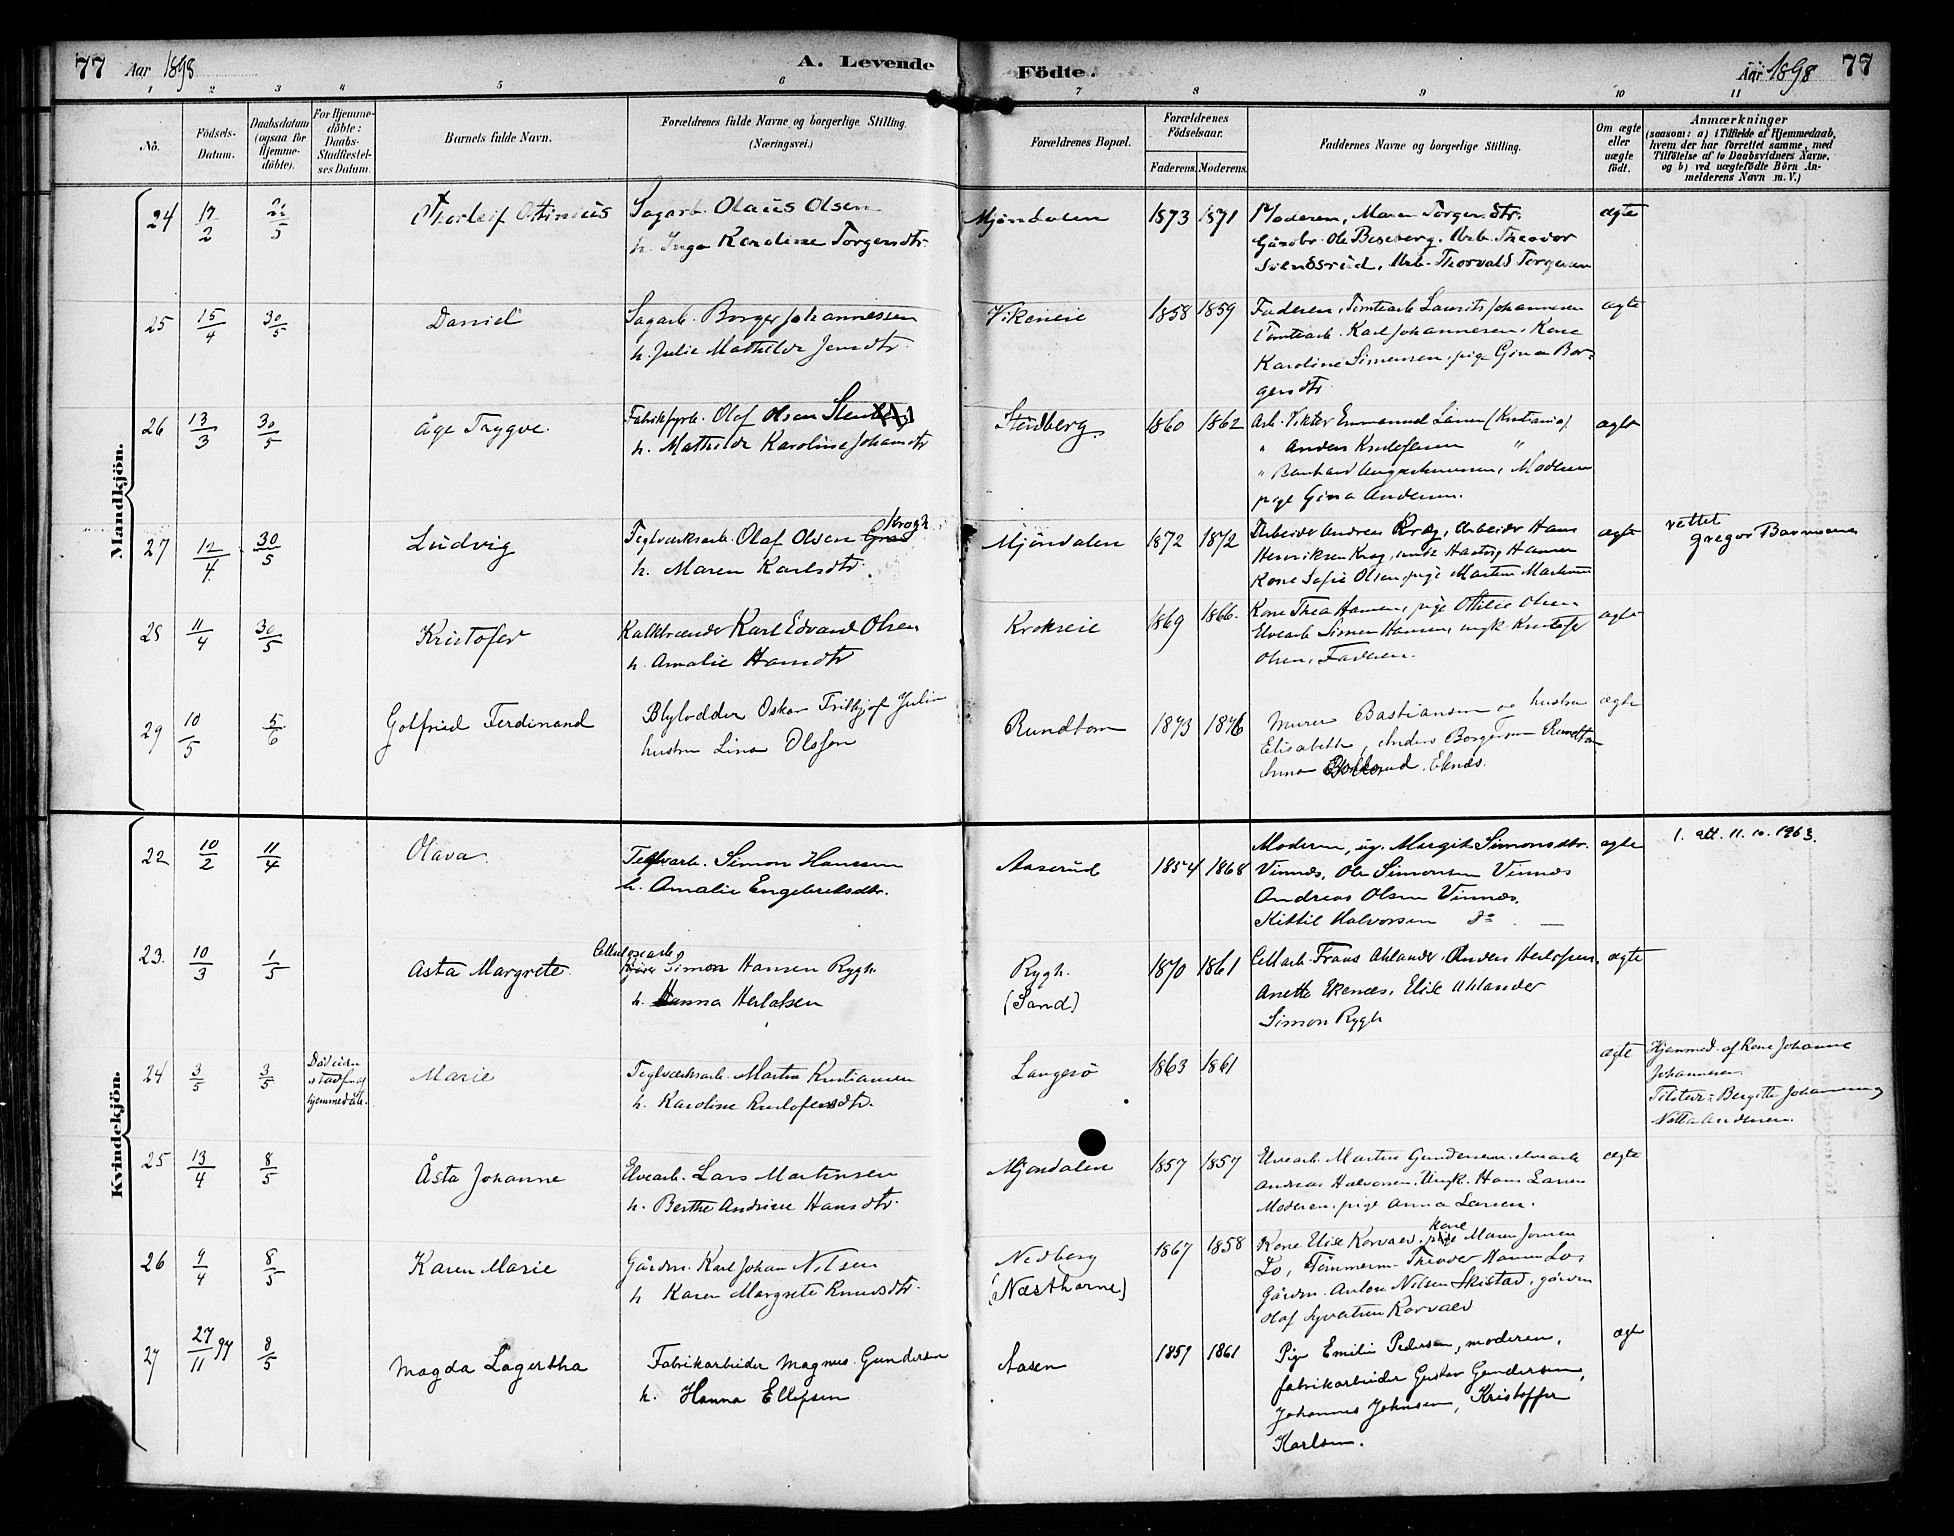 77 Aar 1898 A. Levende
Födte. Aar 1898 77
1 2 3 4 5 6 7 8 9 10 11
No.
Födsels-
Datum.
Daabsdatum
(ogsaa for
Hjemme-
döbte).
For Hjemme-
döbte:
Daabs-
Stadfæstel-
ses Datum.
Barnets fulde Navn.
Forældrenes fulde Navne og borgerlige Stilling.
(Næringsvei.)
Forældrenes Bopæl.
Forældrenes
Födselsaar.
Faderens. Moderens.
Faddernes Navne og borgerlige Stilling.
Om ægte
eller
uægte
födt.
Anmærkninger
(saasom: a) i Tilfælde af Hjemmedaab,
hvem der har forrettet samme, med
Tilföielse af to Daabsvidners Navne,
og b) ved uægtefödte Börn An-
melderens Navn m. V.)
Mandkjön.
24 12/2 Thorleif Ottinius
Sagarb. Olaus Olsen
h. Inga Karoline Torgersdtr.
Mjöndalen 1873 1871
Moderen, Maren Torgersdtr.
Theodor
Svendsrud, Thorvald Torgersen
ægte
25 15/4 30/5 Daniel
Sagarb. Borger Johannessen
h. Julie Mathilde Jensdtr.
Vikeneie 1858 1859
Faderen, Tomtearb. Laurits Johannesen
Tomtearb. Karl Johannesen, Kone
Karoline Simensen, pige Gina Bor-
gersdtr.
ægte
26 13/3 30/5 Åge Trygve.
Fabrikfyrb. Olaf Olsen
h. Mathilde Karoline Johansdtr
Stenberg 1860 1862
Arb. Viktor Emmanuel Larsen (Kristiania)
" Anders Kristofersen "
" Moderen
pige Gina Andersen.
ægte
27 12/4 30/5 Ludvig
Krogh
Teglværksarb. Olaf Olsen
h. Maren Karlsdtr.
Mjöndalen 1872 1872
Arbeider Andreas Krog, Arbeider Hans
Henriksen Krog, Hansen
Kone Sofie Olsen, pige Martine
ægte
rettet
28 11/4 30/5 Kristofer
Kalkbrænder Karl Edvard Olsen
h. Amalie Hansdtr
Krokseie 1869 1866.
Kone Thea Hansen, pige Ottilie Olsen
Elvearb. Simen Hansen, ungk. Kristofer
Olsen, Faderen.
ægte
29 10/5 5/6 Gotfried Ferdinand
Blylodder Oskar Fritjof Julin
hustru Lina Olsson
Rundtom 1873 1876
Murer Bastiansen og hustru
Elisabeth, Anders Borgersen Rundtom
Anna Eknes.
ægte
Kvindekjön.
22 10/2 11/4 Olava
Teglvarb. Simon Hansen
h. Amalie Engebretsdtr.
Aaserud 1854 1868
Moderen, ug. Margit Simonsdtr.
Vinnæs, Ole Simonsen Vinnæs
Andreas Olsen Vinnæs,
Kittil Halvorsen do —
ægte
1. att. 11.10.1963.
23. 10/3 1/5 Asta Margrete
Cellulosearb.
Simon Hansen Rygh
h. Hanna Herlofsen
Rygh.
(Sand)
1870 1861
Cellarb. Frans Ahlander, Anders Herlofsen,
Anette Ekenæs, Elise Ahlander
Simon Rygh
ægte
24 3/5 3/5
hjemmedåb.
Marie
Teglværksarb. Martin Kristiansen
h. Karoline Kristofersdtr.
Langesö 1863 1861
ægte
Hjemmed. af Kone Johanne
Johannesen.
Tilstede: Bergitte Johannesen,
Andersen.
25 13/4 8/5 Åsta Johanne
Elvearb. Lars Martinsen
h. Berthe Andrine Hansdtr.
Mjöndalen 1857 1857
Elvearb. Martin Gundersen, elvearb.
Andreas Halvorsen. Ungk. Hans Larsen
Moderen, pige Anna Larsen.
ægte
26 9/4 8/5 Karen Marie
Gårdm. Karl Johan Nilsen
h Karen Margrete Knudsdtr.
Nedberg
(Næsthorne)
1867 1858
kone
Kone Elise Korvald, Maren Jensen
Lo, Tömmerm. Theodor Hansen Lo,
Gårdm. Anton Nilsen Skistad, gårdm
Olaf Syvertsen Korvald
27 27/11 97 8/5 Magda Lagertha
Fabrikarbeider Magnus Gundersen
h. Hanna Ellefsen
Aasen 1859 1861
Pige Emilie Pedersen, moderen,
fabrikarbeider Gustav Gundersen,
Johannes Johnsen, Kristoffer
Karlsen.
ægte